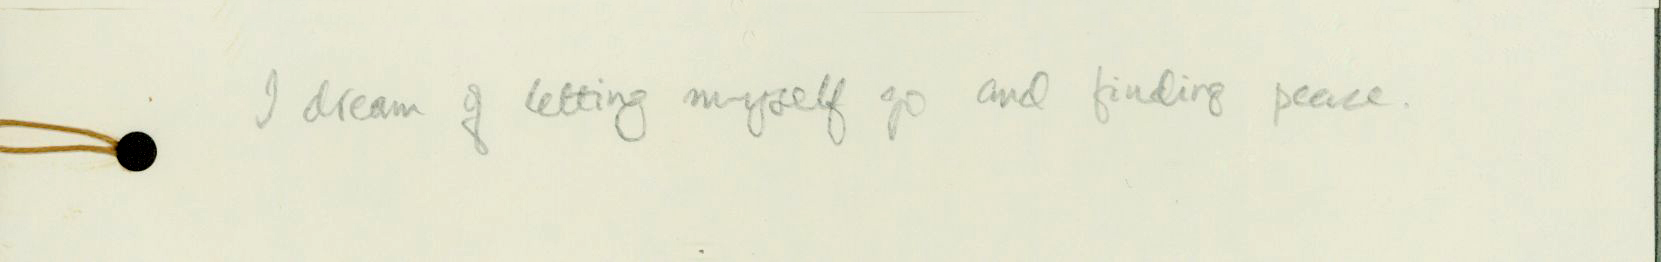 I dream of letting myself go and finding peace.